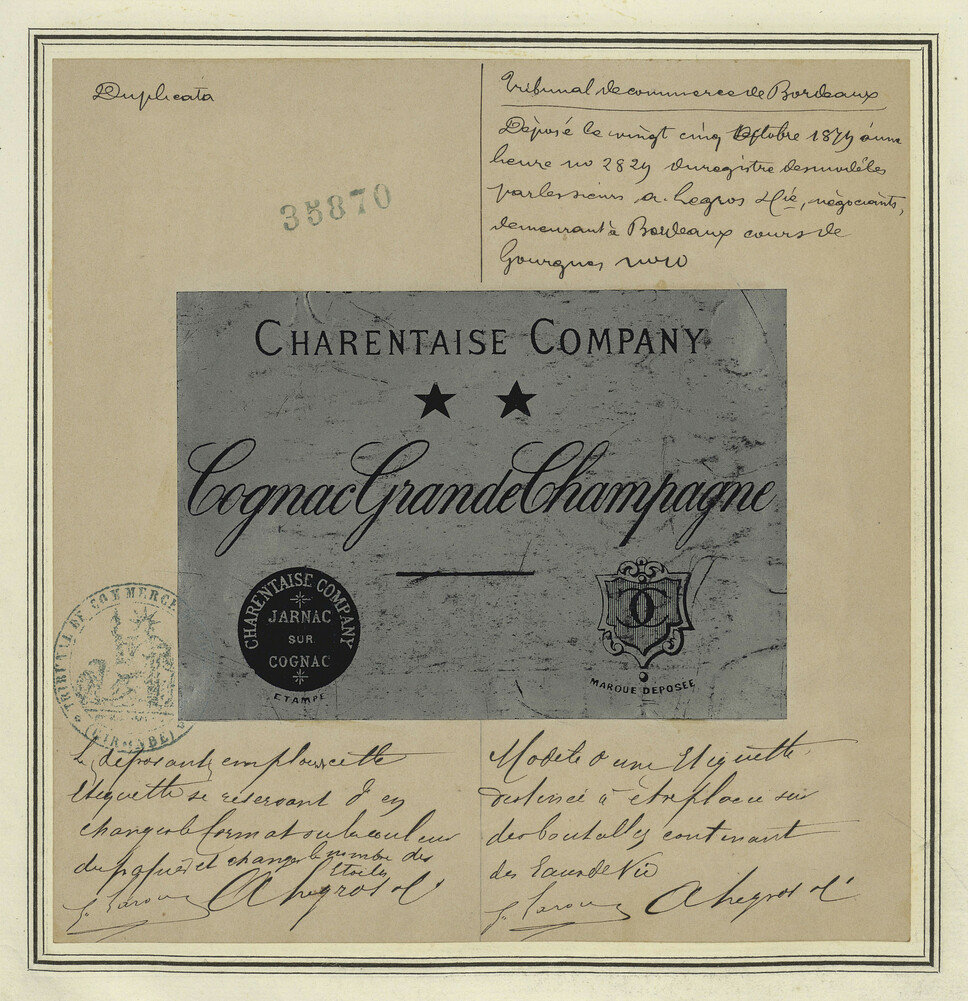 Duplicata
Tribunal de commerce de Bordeaux
Déposé le vingt cinq Octobre 1879 à une
heure no 2829 du registre des modèles
par les sieurs A. Legros & Cie, négociants,
demeurant à Bordeaux cours de
Gourgues no 10
35870
CHARENTAISE COMPANY
★ ★
Cognac Grande Champagne
CHARENTAISE COMPANY
JARNAC
SUR
COGNAC
ETAMPE
MARQUE DEPOSÉE
TRIBUNAL DE COMMERCE
Les déposants emploient cette
Etiquette se réservant d'en
changer le format ou la couleur
du papier et changer le nombre des
Etoiles
A Legros & Cie
Modèle d'une Etiquette
destinée à être placée sur
des bouteilles contenant
des Eaux de Vie
A Legros & Cie